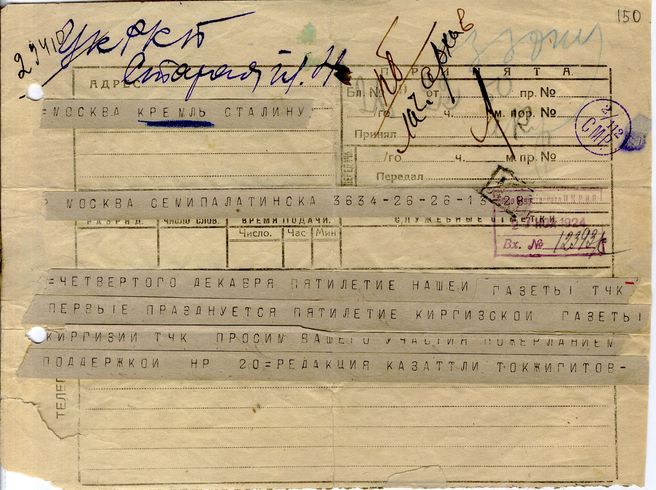 150
23410
УКРКП
Старая пл. 4
АДРЕС
ПРИНЯТА
Бл. № от пр. №
=МОСКВА КРЕМЛЬ СТАЛИНУ
/го ч. м. пор. №
Принял
/го ч. м. пр. №
Передал
МОСКВА СЕМИПАЛАТИНСКА 3634-26-26-13 28
РАЗРЯД. ЧИСЛО СЛОВ. ВРЕМЯ ПОДАЧИ. СЛУЖЕБНЫЕ ОТМЕТКИ.
Число. Час Мин
27 НОЯ 1924
Вх. № 12392
=ЧЕТВЕРТОГО ДЕКАБРЯ ПЯТИЛЕТИЕ НАШЕЙ ГАЗЕТЫ ТЧК
ПЕРВЫЕ ПРАЗДНУЕТСЯ ПЯТИЛЕТИЕ КИРГИЗСКОЙ ГАЗЕТЫ
КИРГИЗИИ ТЧК ПРОСИМ ВАШЕГО УЧАСТИЯ ПОЖЕРЛАНИЕМ
ПОДДЕРЖКОЙ НР 20=РЕДАКЦИЯ КАЗАТТЛИ ТОКЖИГИТОВ-